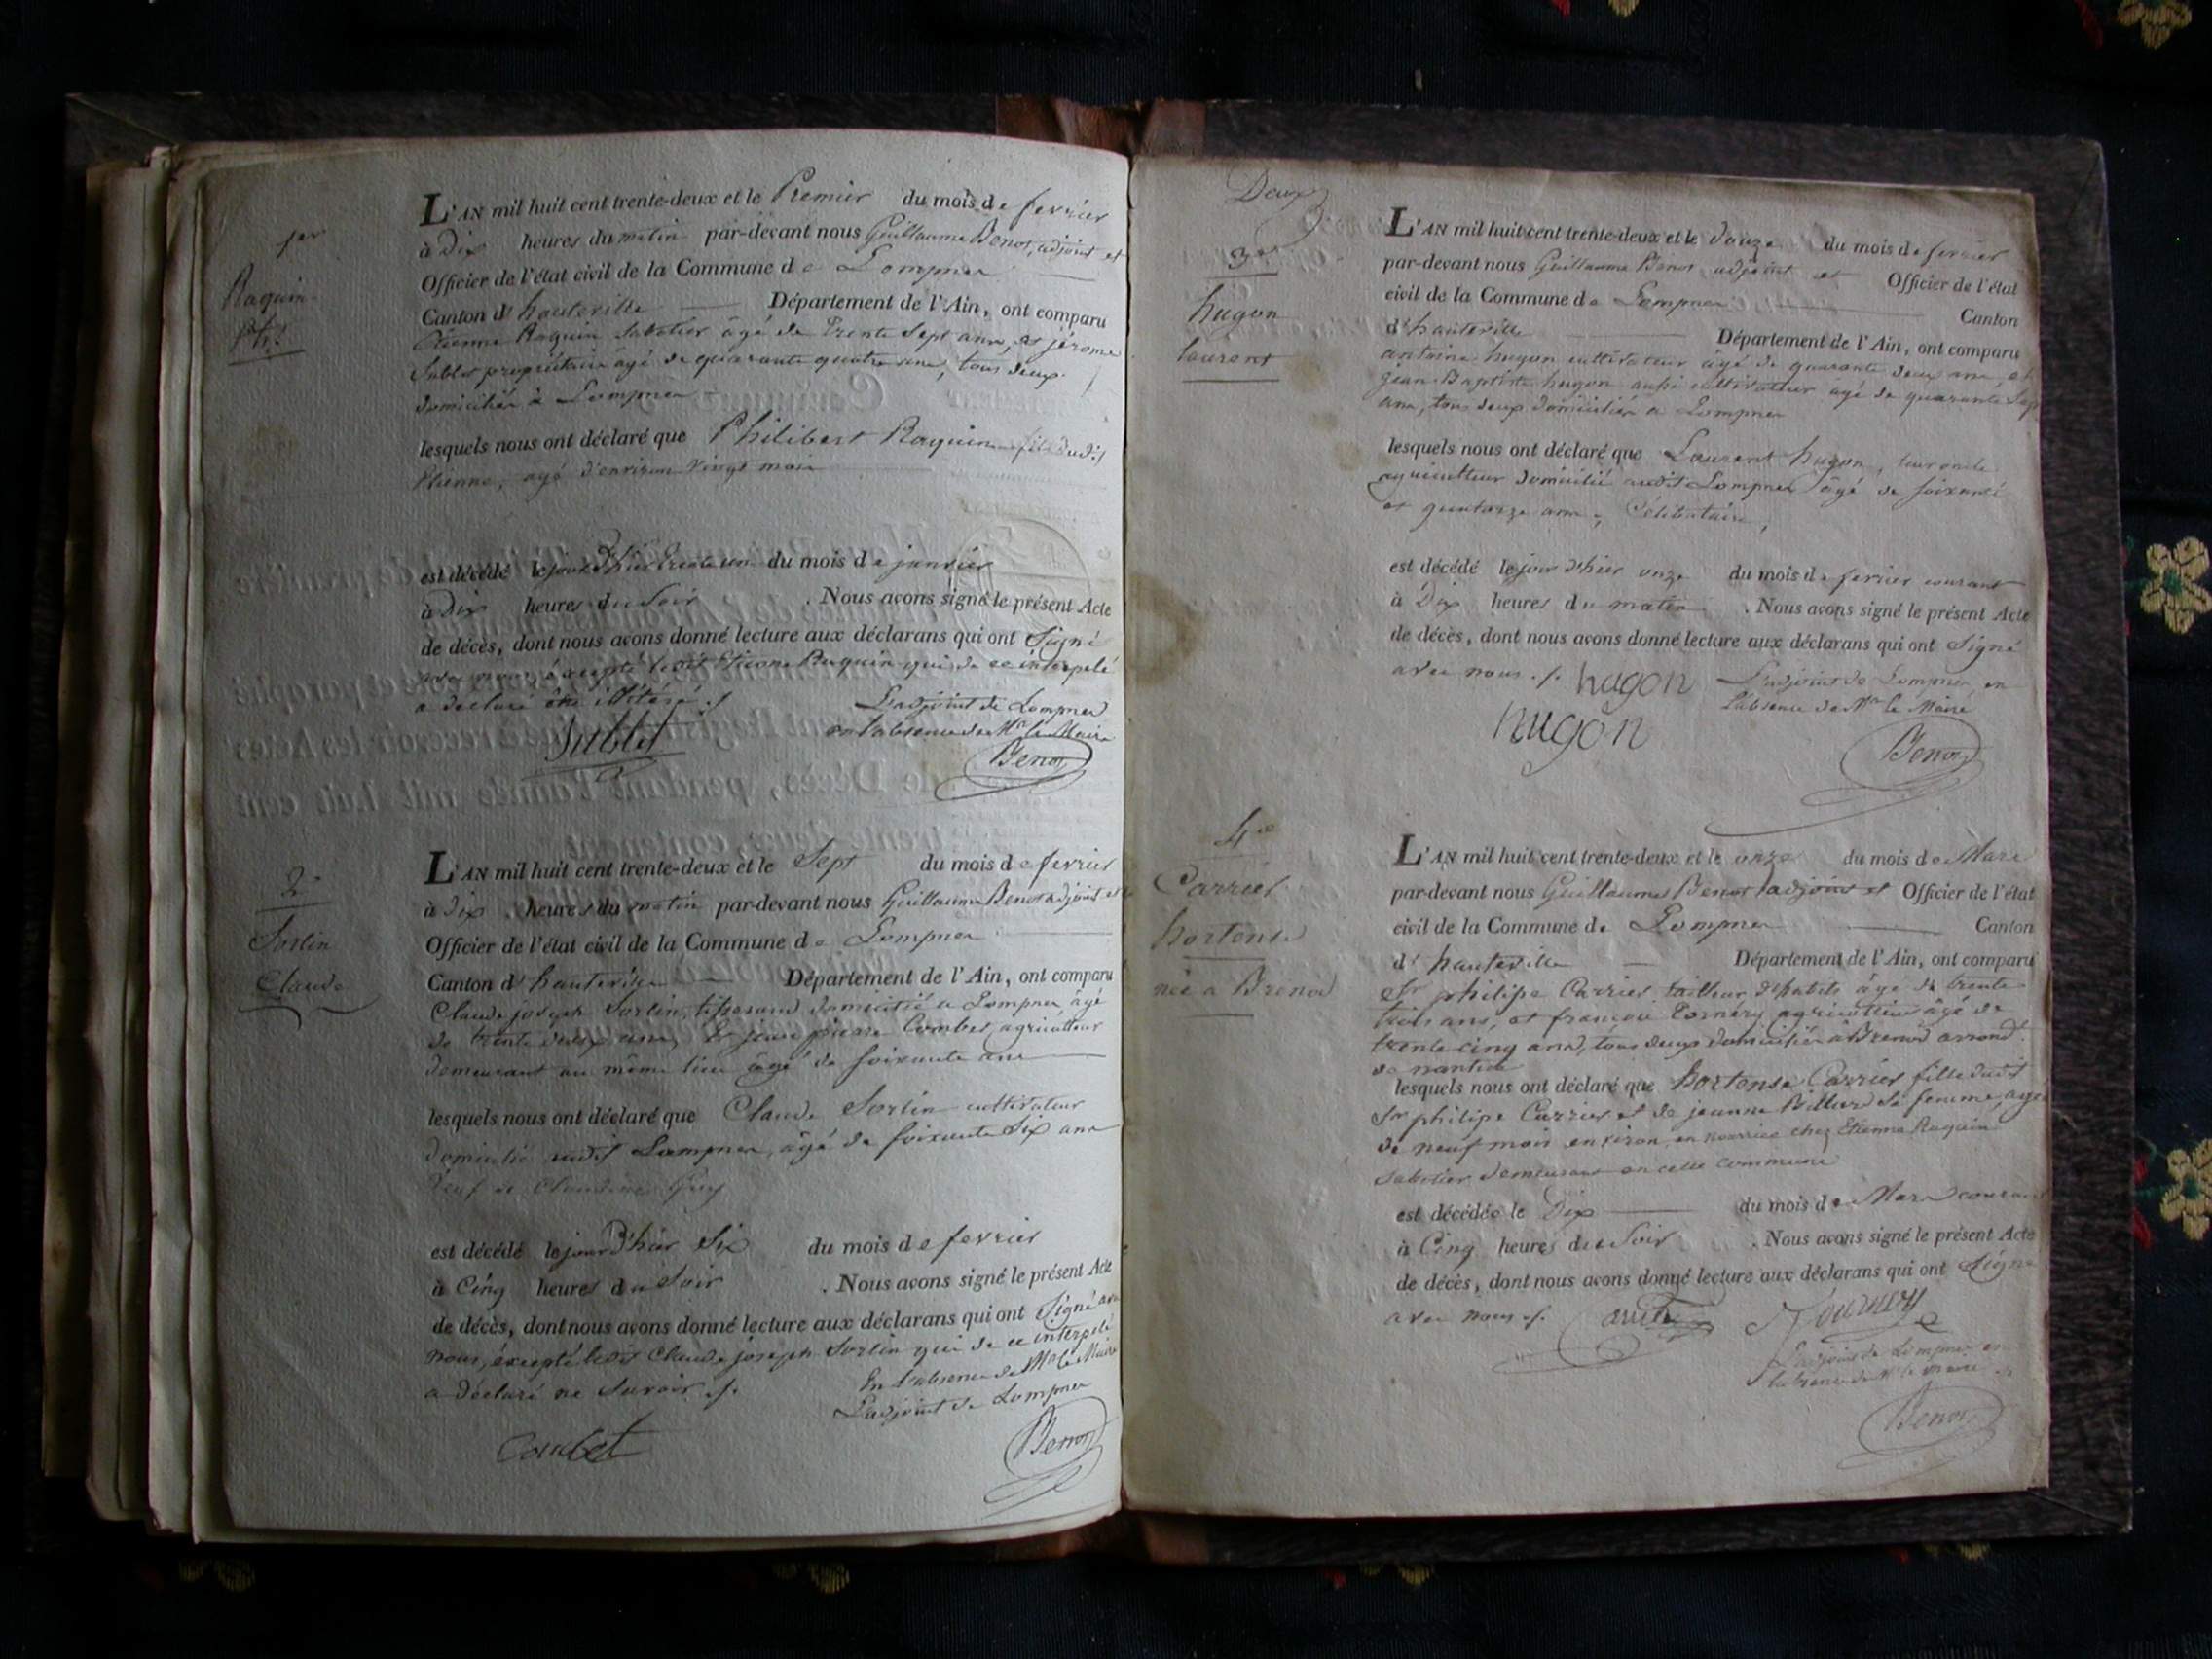 1er
Raquin
Pht
L'AN mil huit cent trente-deux et le Premier du mois de fevrier
à Dix heures du matin par-devant nous Guillaume Benot, adjoint et
Officier de l'état civil de la Commune de Lompnes
Canton d'hauteville Département de l'Ain, ont comparu
Etienne Raquin Sabotier âgé de Trente Sept ans, et jérome
Sublet propriétaire agé de quarante quatre ans, tous deux
domiciliés à Lompnes
lesquels nous ont déclaré que Philibert Raquin fils dudit
Etienne, agé d'environ vingt mois
est décédé le jour d'hier trente un du mois de janvier
à Dix heures du Soir . Nous avons signé le présent Acte
de décès, dont nous avons donné lecture aux déclarans qui ont Signé
avec nous éxcepté ledit Etienne Raquin qui de ce interpelé
a declaré être illitéré ./.
L'adjoint de Lompnes
en l'absence de Mr le Maire
Sublet
Benot
2e
Sorlin
Claude
L'AN mil huit cent trente-deux et le Sept du mois de fevrier
à dix heures du matin par-devant nous Guillaume Benot adjoint et
Officier de l'état civil de la Commune de Lompnes
Canton d'hauteville Département de l'Ain, ont comparu
Claude joseph Sorlin, tisserand domicilié a Lompnes, âgé
de trente deux ans, Et jean pierre Combet, agriculteur
demeurant au même lieu âgé de soixante ans
lesquels nous ont déclaré que Claude Sorlin cultivateur
domicilié audit Lompnes, âgé de soixante Six ans
Veuf de Claudine
est décédé le jour d'hier Six du mois de fevrier
à Cinq heures du Soir . Nous avons signé le présent Acte
de décès, dont nous avons donné lecture aux déclarans qui ont Signé avec
nous, éxcepté ledit Claude joseph Sorlin qui de ce interpelé
a déclaré ne Savoir ./.
En l'absence de Mr le Maire
L'adjoint de Lompnes
Combet
Benot
Deux
3e
hugon
laurent
L'AN mil huit cent trente-deux et le douze du mois de fevrier
par-devant nous Guillaume Benot, adjoint et Officier de l'état
civil de la Commune de Lompnes Canton
d'hauteville Département de l'Ain, ont comparu
antoine hugon cultivateur âgé de quarante deux ans, et
jean Baptiste hugon aussi cultivateur agé de quarante Sept
ans, tous deux domiciliés a Lompnes
lesquels nous ont déclaré que Laurent hugon, leur oncle
agriculteur domicilié audit Lompnes âgé de soixante
et quatorze ans, Célibataire,
est décédé le jour d'hier onze du mois de fevrier courant
à Dix heures du matin . Nous avons signé le présent Acte
de décès, dont nous avons donné lecture aux déclarans qui ont Signé
avec nous ./. hugon L'adjoint de Lompnes, en
l'absence de Mr le Maire
hugon
Benot
4e
Carrier
hortense
née a Brenod
L'AN mil huit cent trente-deux et le onze du mois de Mars
par-devant nous Guillaume Benot adjoint et Officier de l'état
civil de la Commune de Lompnes Canton
d'hauteville Département de l'Ain, ont comparu
Sr philipe Carrier tailleur d'habits âgé de trente
trois ans, et françois agriculteur âgé de
trente cinq ans, tous deux domiciliés à Brenod arrond.
de nantua
lesquels nous ont déclaré que hortense Carrier fille dudit
Sr philipe Carrier et de jeanne Billiard sa femme, agée
de neuf mois environ en nourrice chez Etienne Raquin
Sabotier demeurant en cette commune
est décédée le Dix du mois de Mars courant
à Cinq heures du Soir . Nous avons signé le présent Acte
de décès, dont nous avons donné lecture aux déclarans qui ont Signé
avec nous ./.
L'adjoint de Lompnes en
l'absence de Mr le Maire
Benot